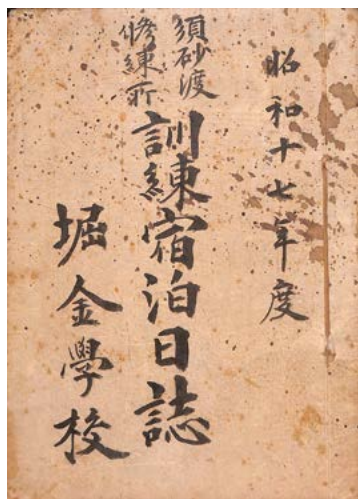 昭和十七年度
須砂渡
修練所
訓練宿泊日誌
堀金學校